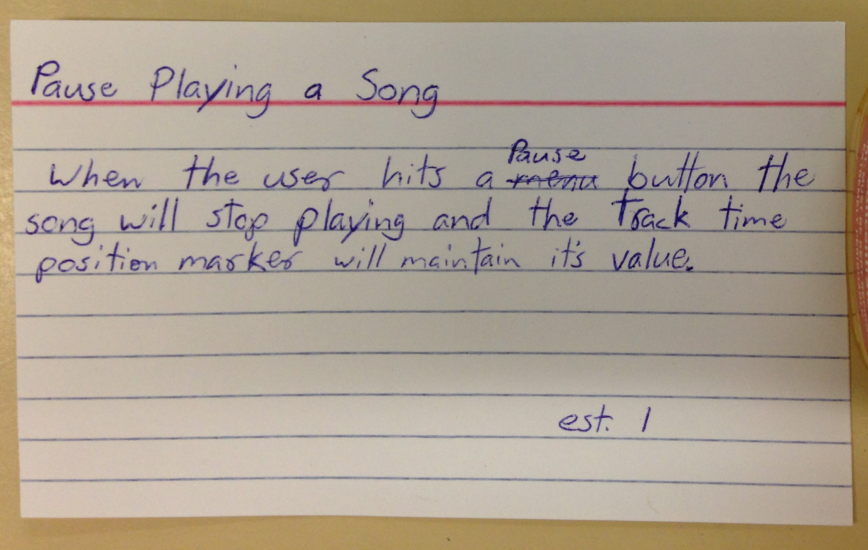 Pause Playing a Song
When the user hits a ~~menu~~ Pause button the
song will stop playing and the Track time
position marker will maintain it's value.
est. 1